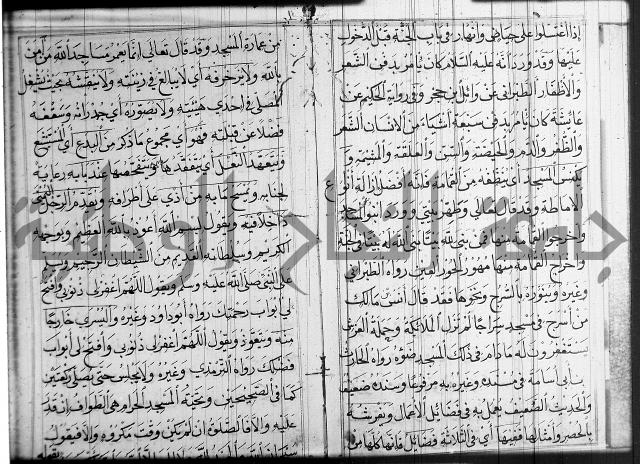 إذا اغتسلوا على حياض وأنهار في باب الجنة قبل الدخول
عليها وقد ورد أنه عليه السلام كان يأمر بدفن الشعر
والأظفار الطبراني عن وائل بن حجر وفي رواية الحكيم عن
عائشة كان يأمر بدفن سبعة أشياء من الإنسان الشعر
والظفر والدم والحيضة والسن والعلقة والمشيمة و
يكنس المسجد أي ينظفه من القمامة فإنه أفضل إزالة أنواع
الإماطة وقد قال تعالى وطهر بيتي وورد ابنوا المساجد
وأخرجوا القمامة منها فمن بنى لله بيتا بنى الله له بيتا في الجنة
وإخراج القمامة منها مهور الحور العين رواه الطبراني
وغيره وينوره بالسرج ونحوها فقد قال أنس بن مالك
من أسرج في مسجد سراجا لم تزل الملائكة وحملة العرش
يستغفرون له ما دام في ذلك المسجد ضوؤه رواه الحارث
بن أبي أسامة في مسنده وغيره به مرفوعا وسنده ضعيف
والحديث الضعيف يعمل به في فضائل الأعمال ويفرشه
بالحصير وأمثالها ففيها أي في الثلاثة فضائل فإنها كلها من
من عمارة المسجد وقد قال تعالى إنما يعمر مساجد الله من آمن
بالله ولا يزخرفه أي لا يبالغ في زينته ولا ينقشه بحيث يشغل
المصلي في إحدى هيئته ولا يصوره أي جدرانه وسقفه
فضلا عن قبلته فهو أي مجموع ما ذكر من البدع أي المستشنع
ويتعهد النعل أي يتفقدها عند بابه رعاية
لجنابه ويمسح ما به من أذى على أطرافه ويقدم الرجل اليمنى
داخلا فيه ويقول بسم الله أعوذ بالله العظيم وبوجهه
الكريم وسلطانه القديم من الشيطان الرجيم ويسلم
على النبي صلى الله عليه وسلم ويقول اللهم اغفر لي ذنوبي وافتح
لي أبواب رحمتك رواه أبو داود وغيره واليسرى خارجا
منه ويتعوذ ويقول اللهم اغفر لي ذنوبي وافتح لي أبواب
فضلك رواه الترمذي وغيره ولا يجلس حتى يصلي ركعتين
كما في الصحيحين وتحية المسجد الحرام هي الطواف إن قدر
عليه وإلا فالصلوة إن لم يكن وقت مكروه وإلا فيقول